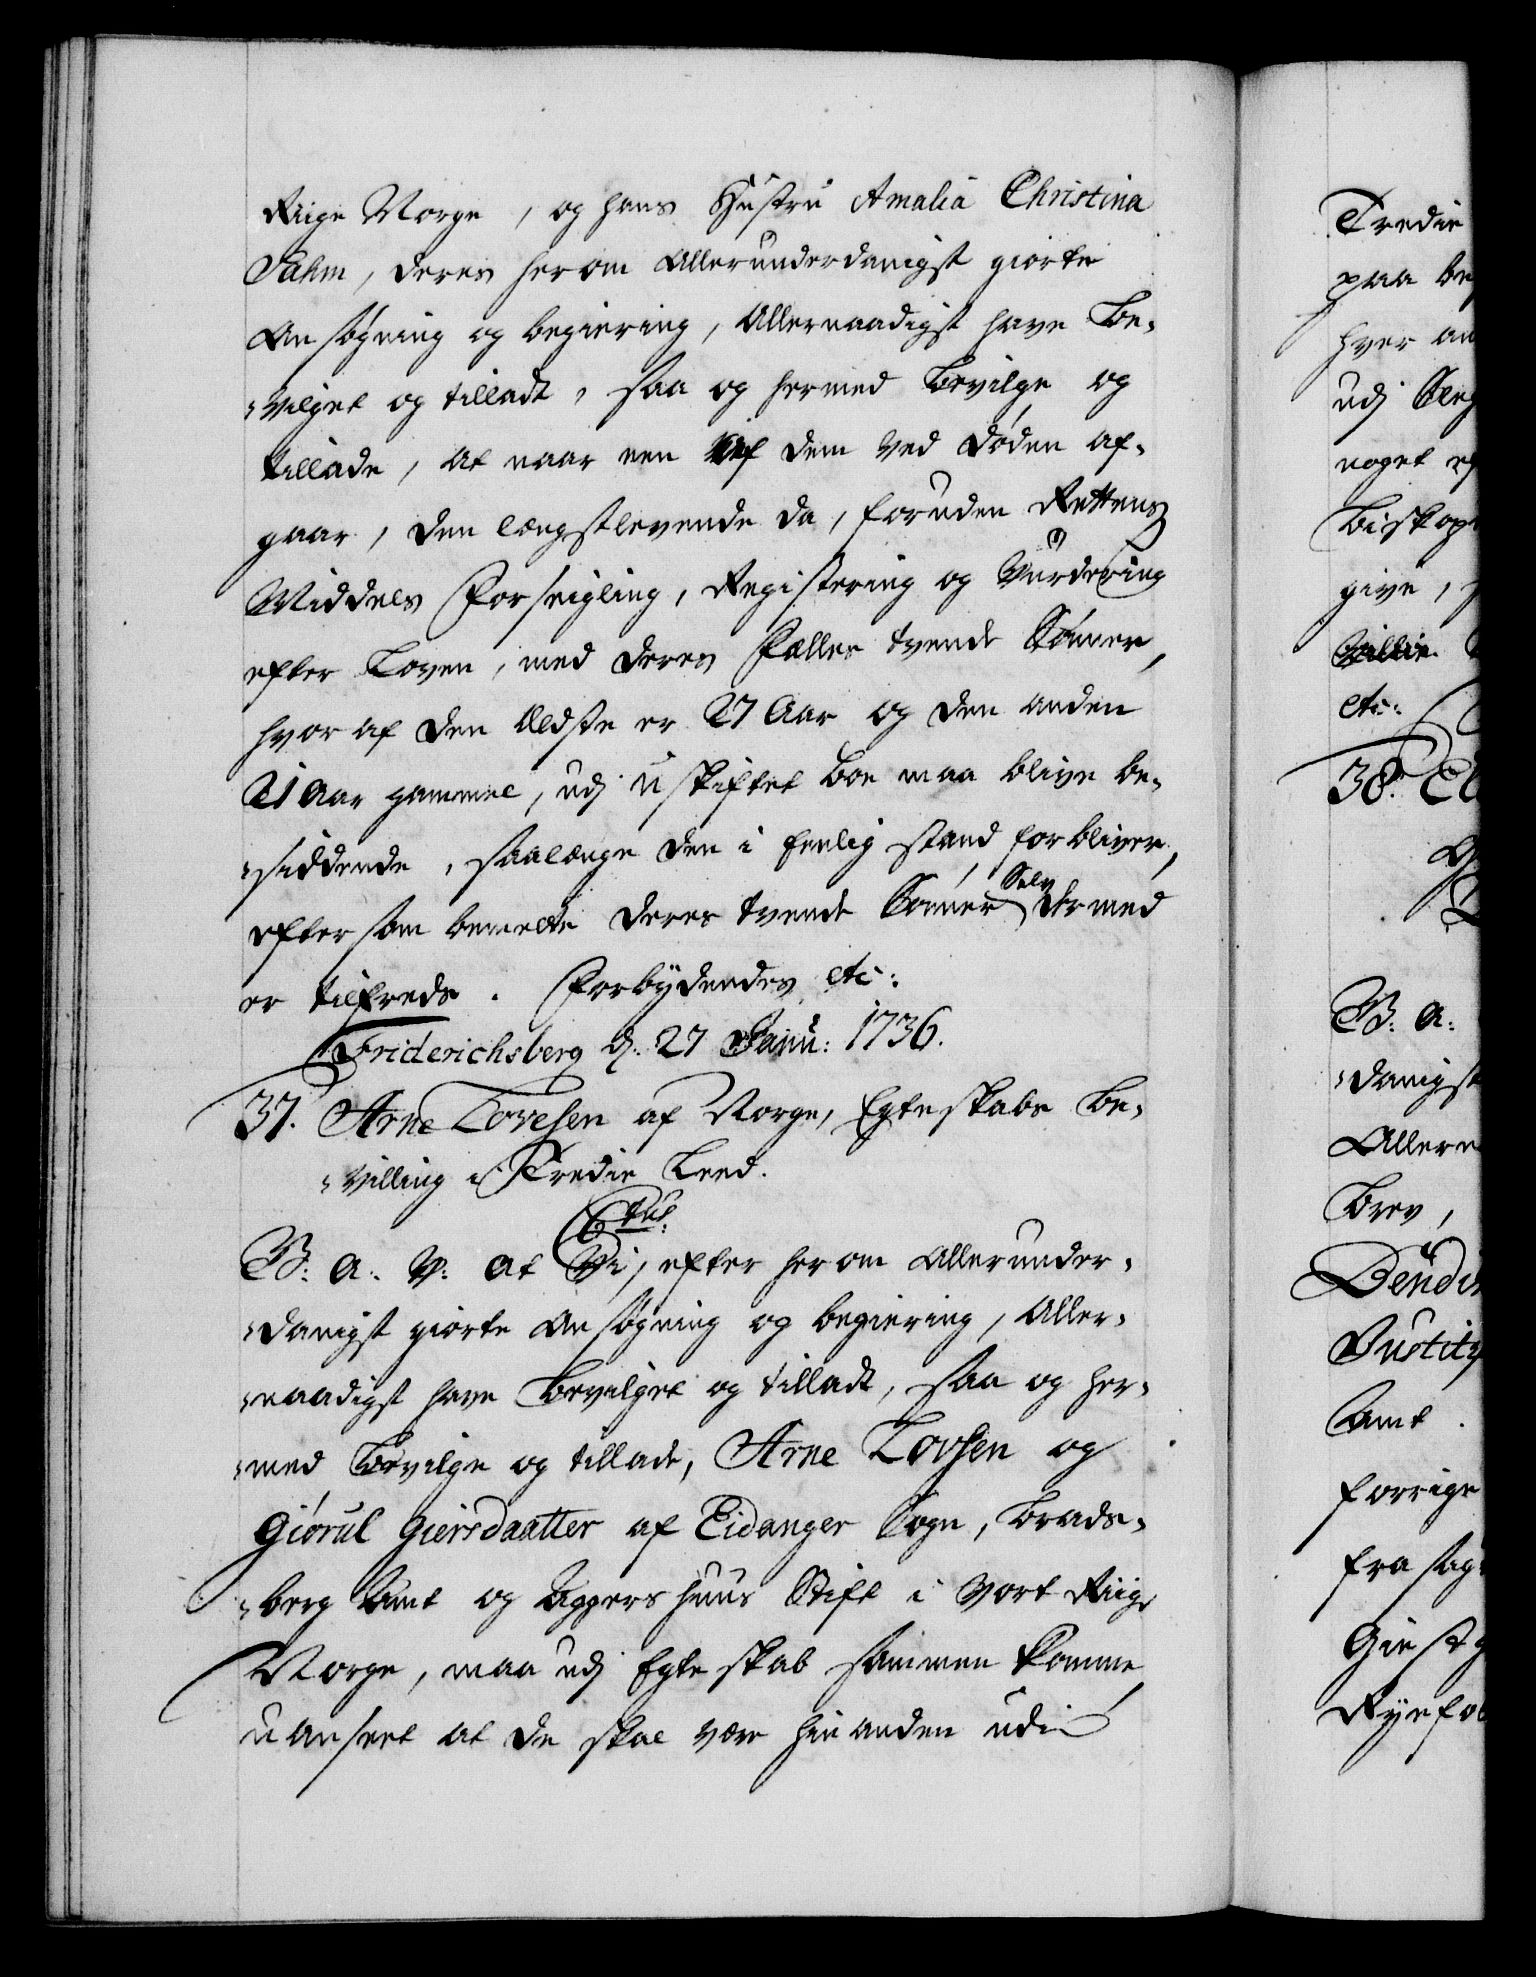 Riige Norge, og hans Hustru Amalia Christina
Sahm, deres herom Allerunderdanigst giorte
Ansøgning og begiering, Allernaadigst have Be-
-vilget og tilladt, saa og hermed Bevilge og
tillade, at naar een af dem ved Døden af-
gaar, den længstlevende da, foruden Rettens
Middels Forseigling, Registering og Vurdering
efter Loven, med deres Fælles tvende Sønner,
hvoraf den Ældste er 27 Aar og den anden
21 Aar gammel, udj uskiftet boe maa blive be-
-siddende, saalænge den i Eenlig stand forbliver,
eftersom bemelte deres tvende Sønner Selv dermed
er tilfreds. Forbydendes etc:
Friderichsberg d: 27 Janu: 1736.
37. Arne Tovesen af Norge, Egteskabs Be-
-villing i Tredie Leed.
C6tus.
G: A: V: at Vi, efter herom Allerunder-
-danigst giorte Ansøgning og begiering, Aller-
-naadigst have Bevilget og tilladt, saa og her-
-med Bevilge og tillade, Arne Tovsen og
Giørul Giersdaatter af Eidanger Sogn, Brads-
-berg Amt og Aggershuus Stift i Vort Riige
Norge, maa udj Egteskab sammen komme,
uanseet at de skal være hinanden udi
Tredie
paa be
hver an
udj Sleg
noget ef
Biskop
give,
etc:
38. El
G: A:
-danigst
Allern
Brev,
Bendi
Justity
Amt.
forrige
frasag
Giestg
Ryefol